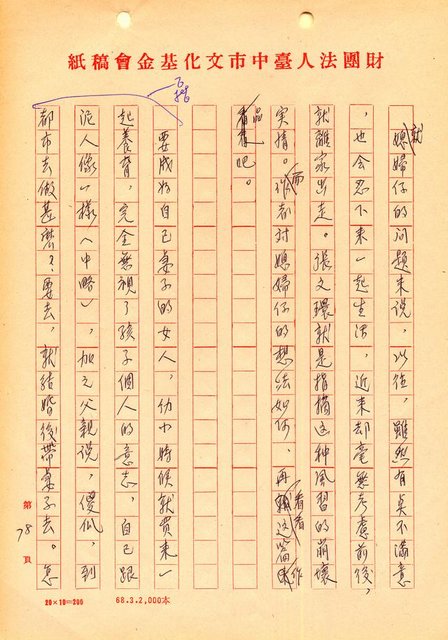 財團法人臺中市文化基金會稿紙
就媳婦仔的问題來说，以往，雖然有臭不滿意
，也会忍下来一起生活，近来却毫無考慮前後，
就離家出走。張文環就是指摘这种風習的崩壞
实情。而作者对媳婦仔的想法如何，再看看这篇作
品看看吧。
石猪
要成为自己妻子的女人，幼小時候就買来一
起養育，完全無視了孩子個人的意志，自己跟
泥人像一樣（中略），加之父親说，傻瓜，到
都市去做甚麽？要去，就结婚後带妻子去。怎
第78頁
20×10=200
68.3.2,000本